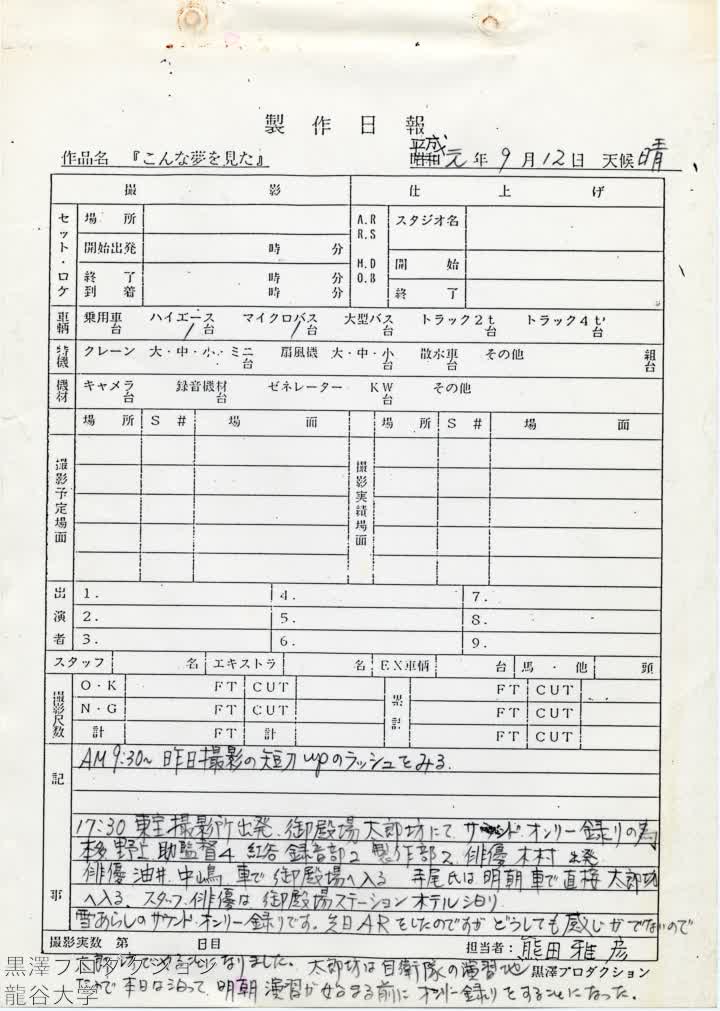 製作日報
作品名 『こんな夢を見た』 平成 昭和 元年 9月12日 天候 晴
撮影 仕上げ
セット・ロケ 場所 A.R R.S スタジオ名
開始出発 時 分 M.D 開始
終了 時 分 O.B 終了
到着 時 分
車輌 乗用車 台 ハイエース 1台 マイクロバス 1台 大型バス 台 トラック2t 台 トラック4t 台
特機 クレーン 大・中・小・ミニ 台 扇風機 大・中・小 台 散水車 台 その他 組 台
機材 キャメラ 台 録音機材 台 ゼネレーター KW 台 その他
場所 S# 場面 場所 S# 場面
撮影予定場面 撮影実績場面
出演者 1. 4. 7.
2. 5. 8.
3. 6. 9.
スタッフ 名 エキストラ 名 EX車輌 台 馬・他 頭
撮影尺数 O・K FT CUT 累計 FT CUT
N・G FT CUT FT CUT
計 FT 計 FT CUT
記事
AM9:30~ 昨日撮影の短刀upのラッシュをみる.
17:30 東宝撮影所出発. 御殿場太郎坊にて サウンドオンリー録りの為
本多 野上 助監督4 紅谷 録音部2 製作部2 俳優 木村 出発
俳優 油井. 中嶋 車で御殿場へ入る 寺尾氏は明朝車で直接太郎坊
へ入る. スタッフ. 俳優は御殿場ステーションホテル泊り.
雪あらしのサウンド・オンリー録りです. 先日ARをしたのですがどうしても感じがでないので
撮影実数 第 日目 担当者: 熊田雅彦
なりました. 太郎坊は自衛隊の演習地 黒澤プロダクション
なので本日は泊って, 明朝演習が始まる前にオンリー録りをすることになった.
黒澤プロダクション
龍谷大学